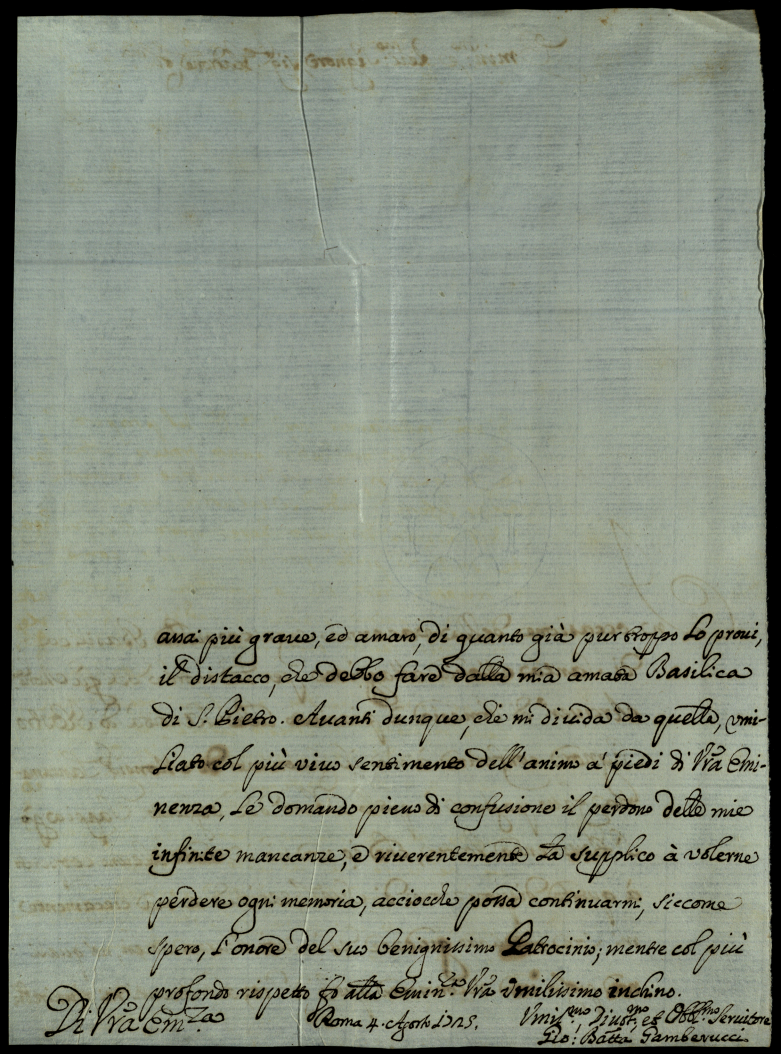 assai più graue, ed amaro, di quanto già pur troppo lo proui,
il distacco, che debbo fare dalla mia amata Basilica
di S. Pietro. Auanti dunque, che mi diuida da quella, vmi-
liato col più viuo sentimento dell'animo a' piedi di Vra Emi-
nenza, Le domando pieno di confusione il perdono delle mie
infinite mancanze, e riuerentemente La supplico à volerne
perdere ogni memoria, acciocche possa continuarmi, siccome
spero, l'onore del suo benignissimo Patrocinio; mentre col più
profondo rispetto fo alla Emin.za Vra vmilissimo inchino.
Di Vra Em.za Roma 4. Agosto 1725. Vmiliss.mo, Diuot.mo, et Obbl.mo Seruitore
Gio: Batta Gamberucci